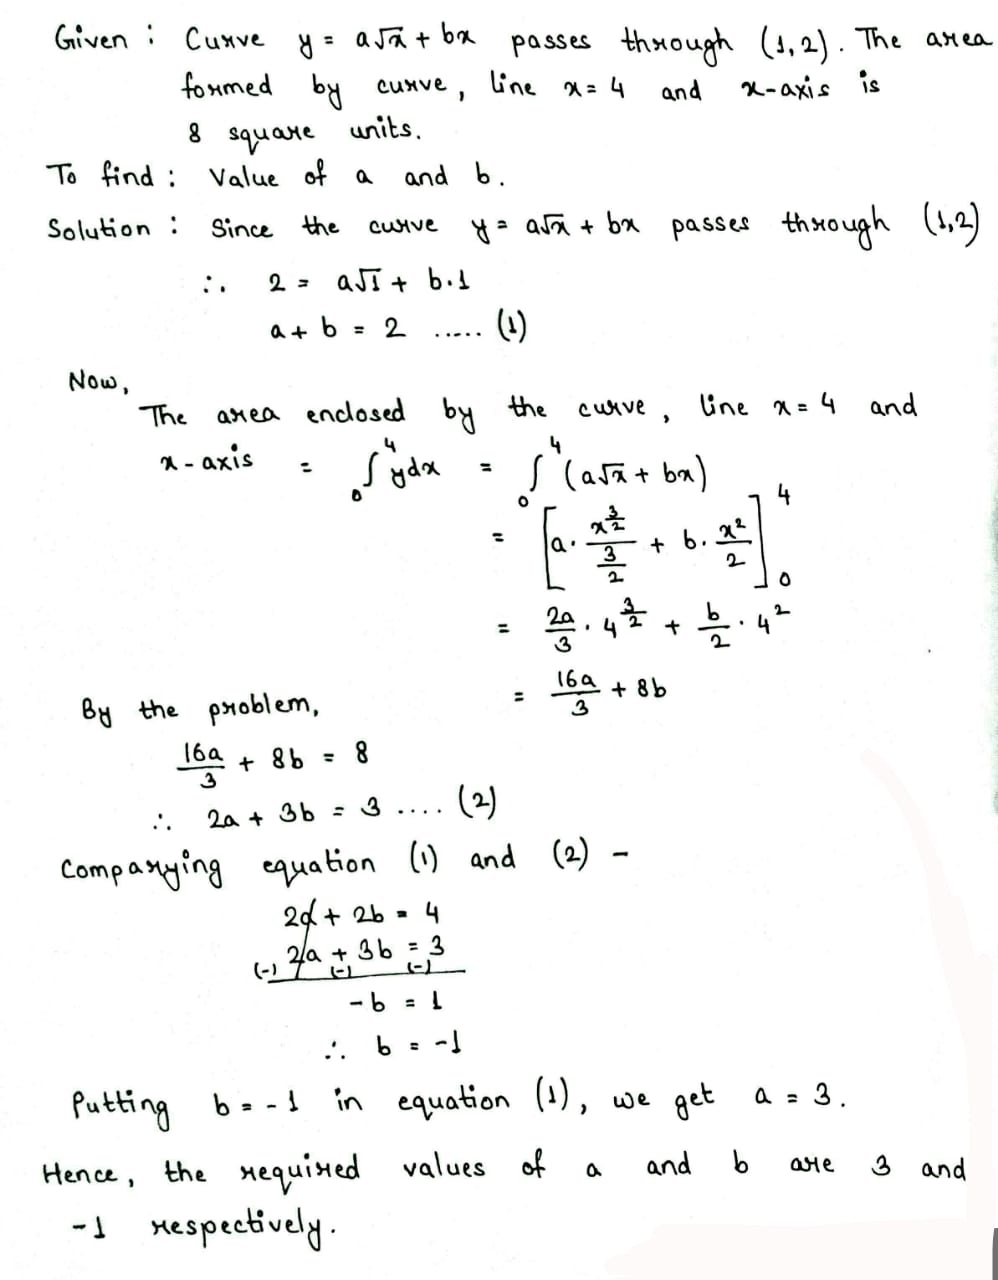 Given : Curve y = a√x + bx passes through (1,2). The area
formed by curve, line x = 4 and x-axis is
8 square units.
To find : Value of a and b.
Solution : Since the curve y = a√x + bx passes through (1,2)
∴ 2 = a√1 + b.1
a + b = 2 ..... (1)
Now,
The area enclosed by the curve, line x = 4 and
x-axis = ∫₀⁴ ydx = ∫₀⁴ (a√x + bx)
= [a. x^(3/2)/(3/2) + b. x²/2]₀⁴
= 2a/3 . 4^(3/2) + b/2 . 4²
= 16a/3 + 8b
By the problem,
16a/3 + 8b = 8
∴ 2a + 3b = 3 .... (2)
Comparying equation (1) and (2) -
2a + 2b = 4
(-) 2a + 3b = 3
(-) (-)
-b = 1
∴ b = -1
Putting b = -1 in equation (1), we get a = 3.
Hence, the required values of a and b are 3 and
-1 respectively.